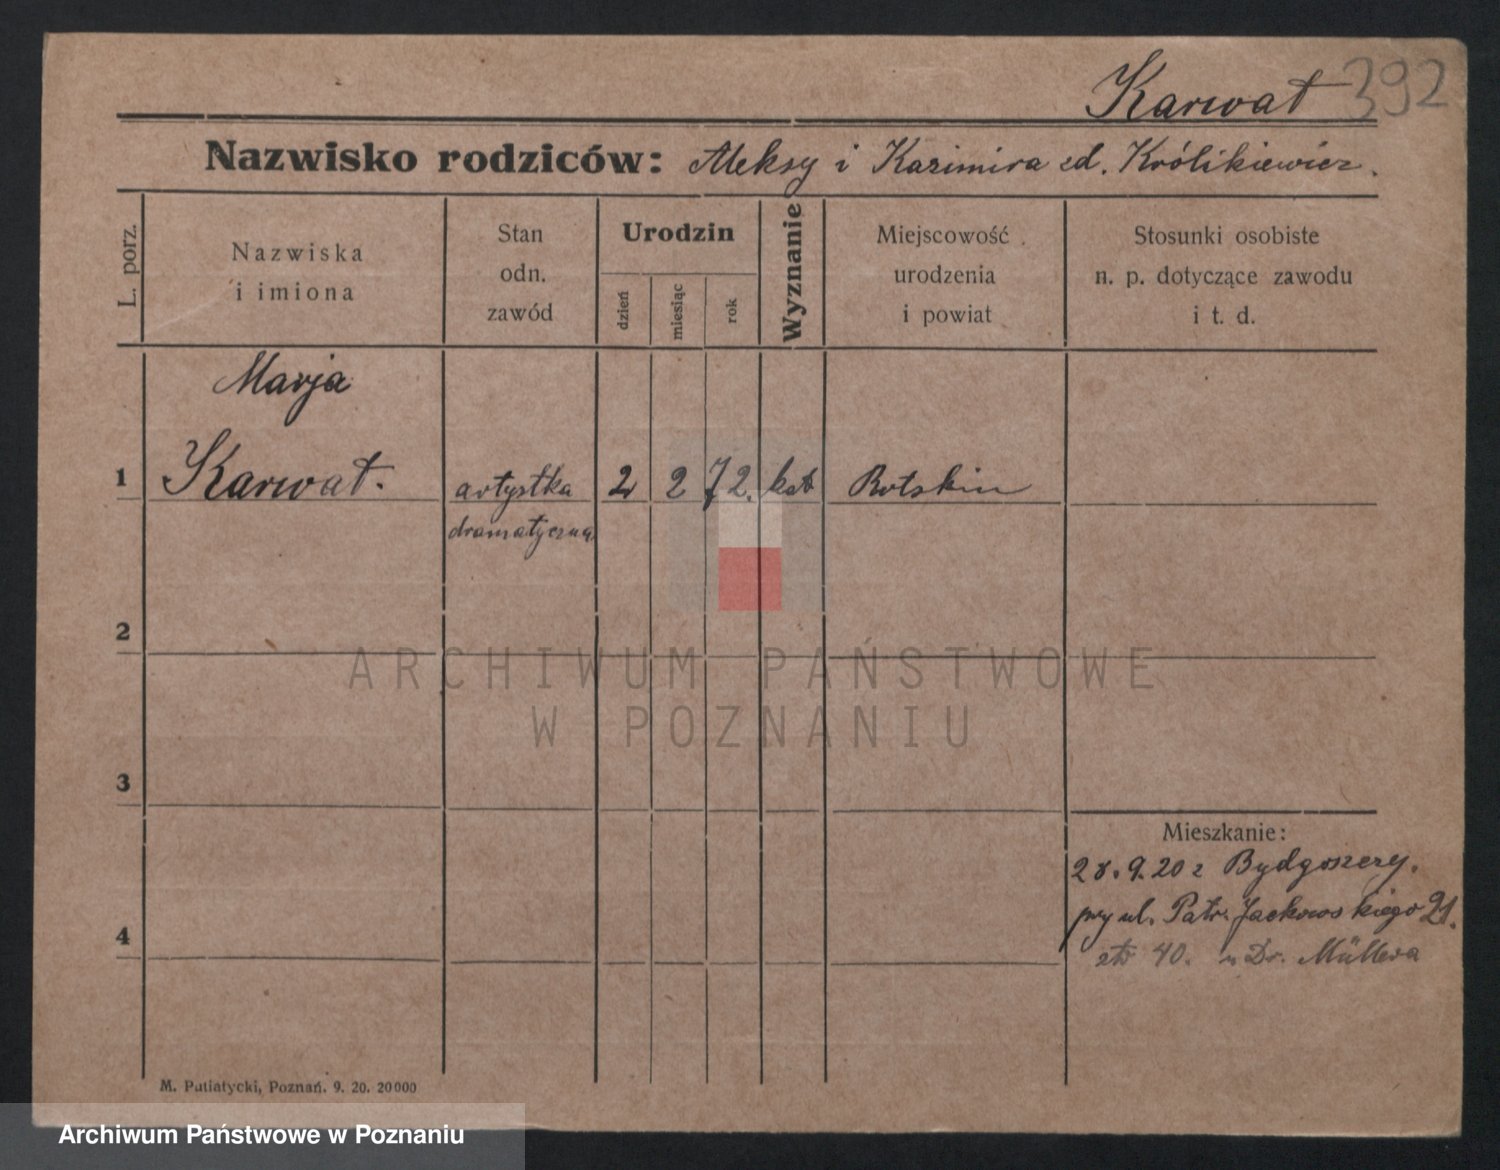 Karwat 392
Nazwisko rodziców: Aleksy i Kazimira zd. Królikiewicz.
L. porz.
Nazwiska
i imiona
Stan
odn.
zawód
Urodzin
dzień
miesiąc
rok
Wyznanie
Miejscowość
urodzenia
i powiat
Stosunki osobiste
n. p. dotyczące zawodu
i t. d.
Marja
1 Karwat. artystka 2 2 72. kat
dramatyczna
2
3
4
Mieszkanie:
28.9.20 z Bydgoszczy.
przy ul. Patr. Jackowskiego 21.
40. u Dr. Müllera
M. Putiatycki, Poznań. 9. 20. 20000
ARCHIWUM PAŃSTWOWE
W POZNANIU
Archiwum Państwowe w Poznaniu